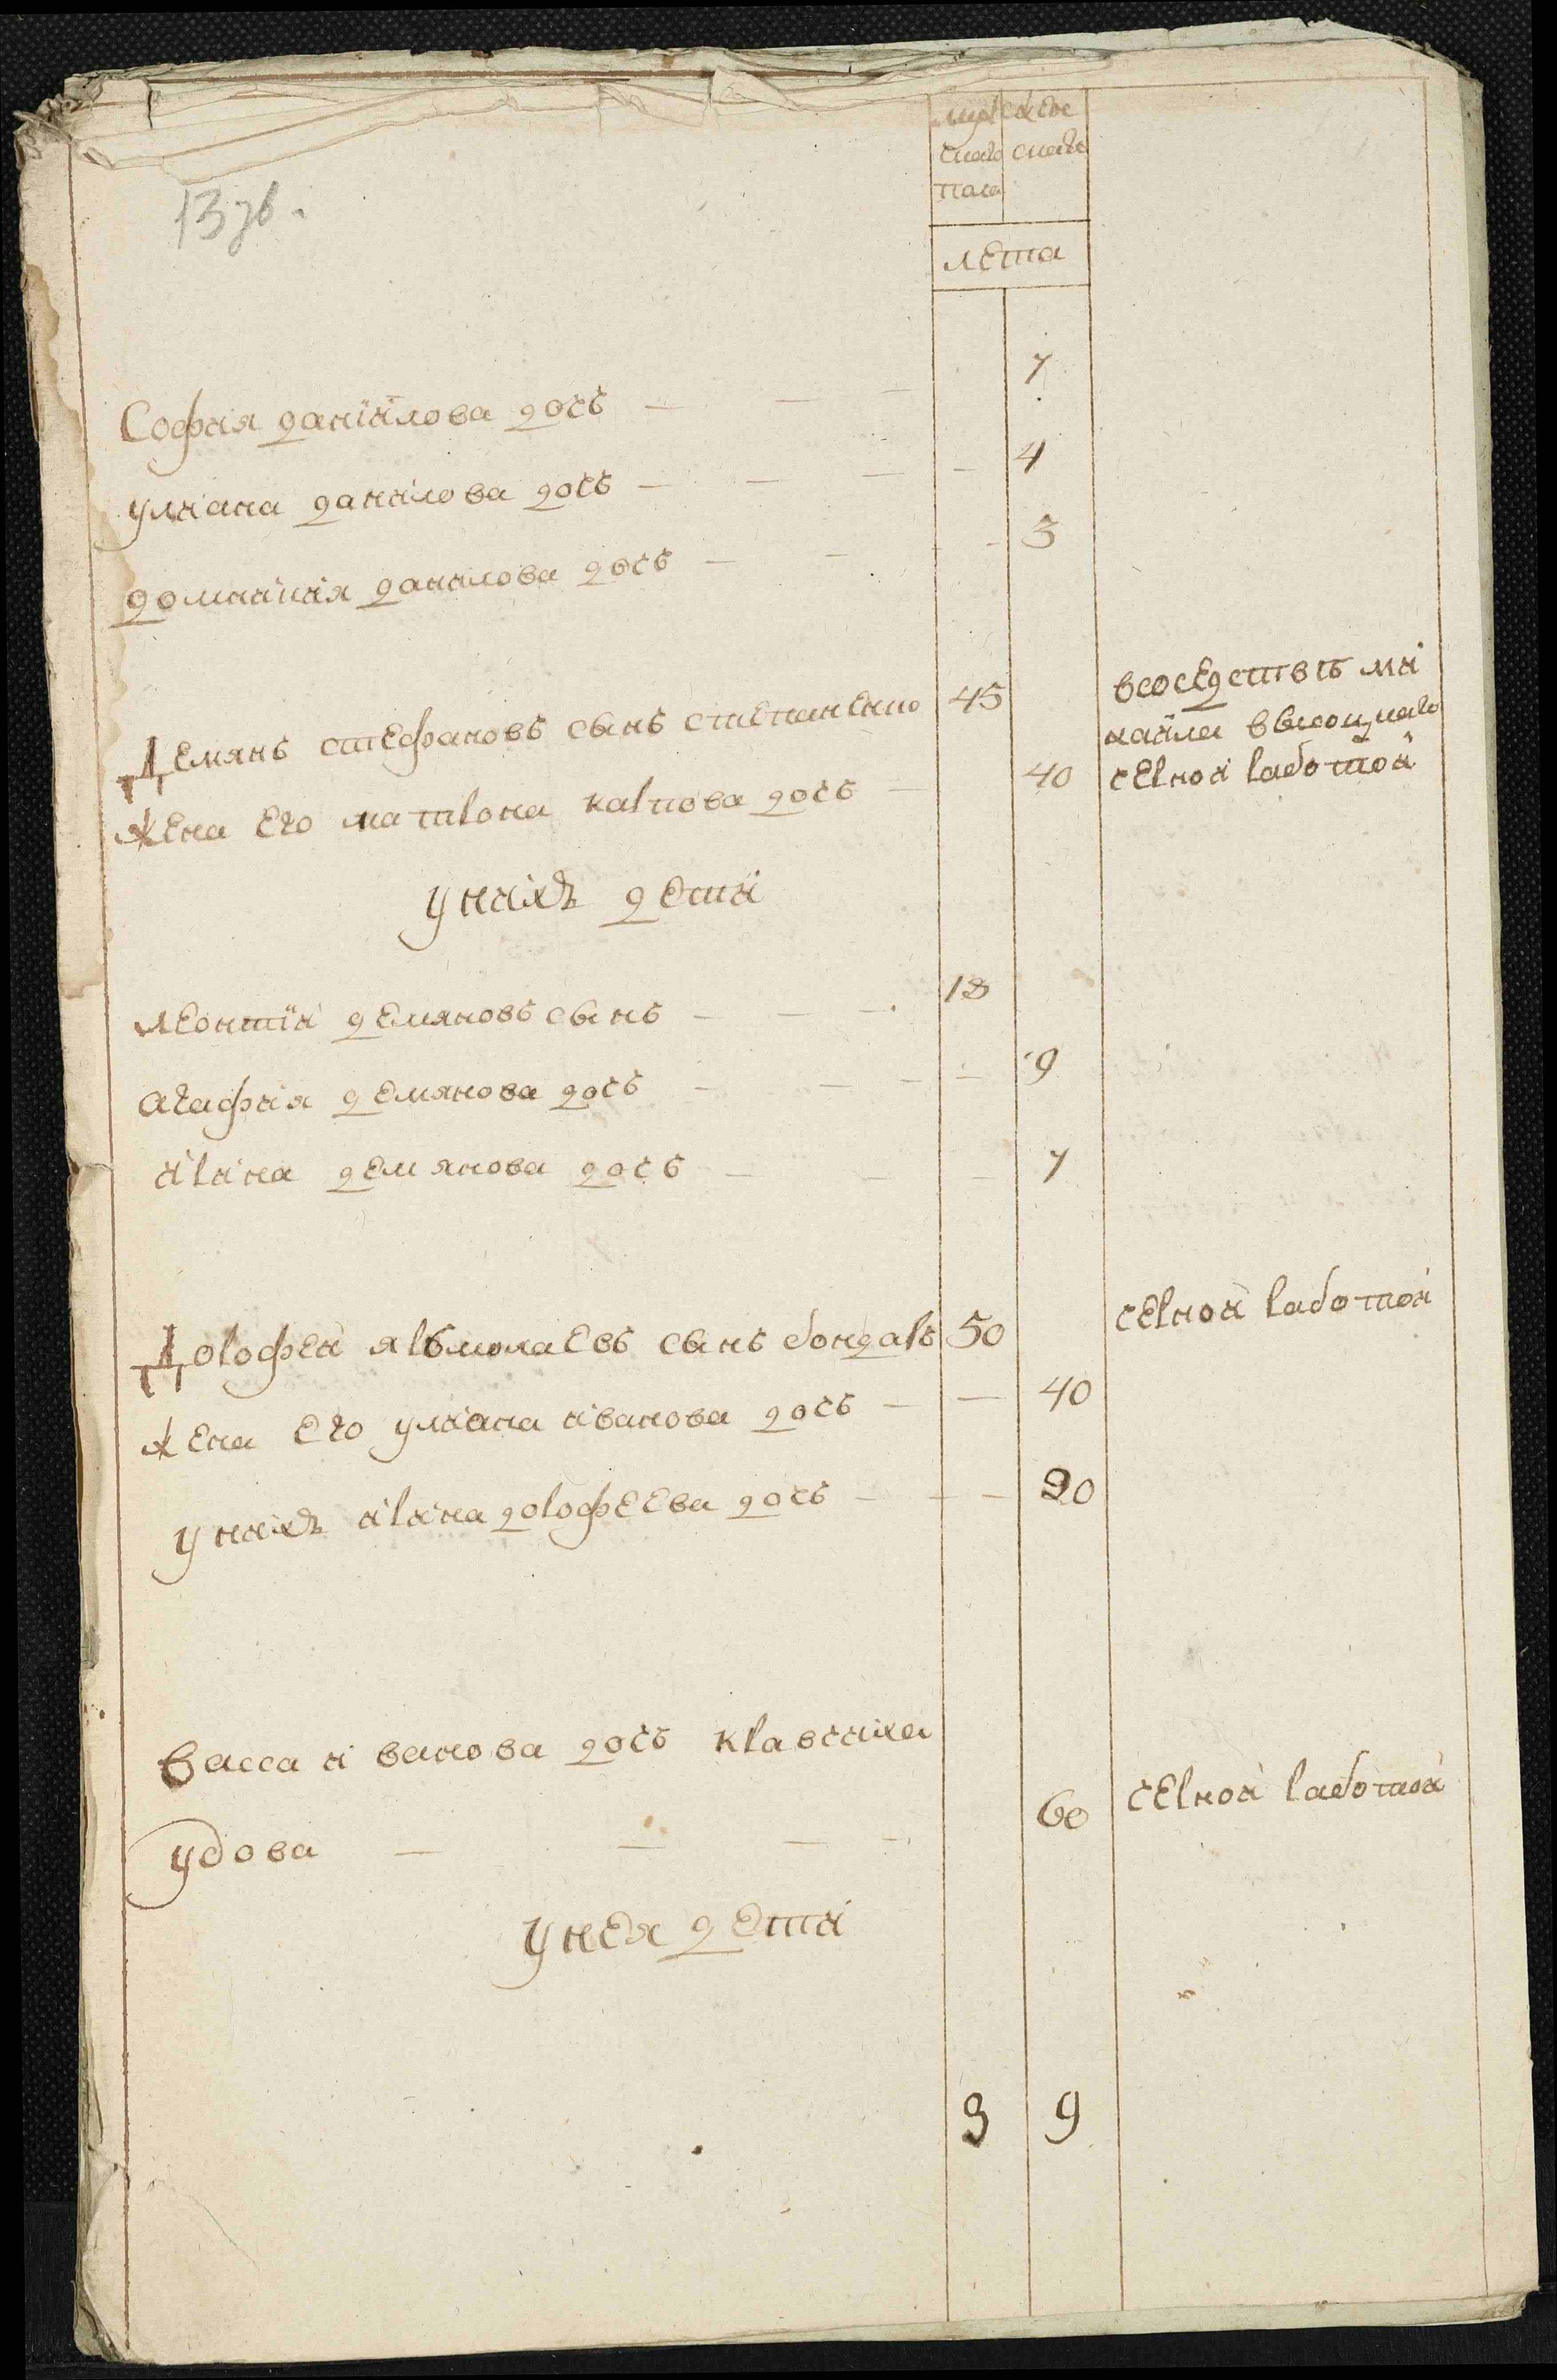 муж женс
скаго скаго
пола
13 зв.
лета
София данiилова дочь — — — 7
улиана данилова дочь — — — — 4
домникия данилова дочь — — — 3
Демянъ стефановъ сынъ степаненко 45 всоседстве ми
хаила высоцкаго
жена его матрона карпова дочь — 40 черной работой
у нихъ дети
леонтiй демяновъ сынъ — — — 13
агафия демянова дочь — — — — 9
ирина демянова дочь — — — 7
Дорофей ярьмолаевъ сынъ бондарь 50 черной работой
жена его улиана иванова дочь — — 40
у нихъ ирина дорофеева дочь — — — 20
васса иванова дочь кравчиха
удова — — — — 60 черной работой
у нея дети
3 9